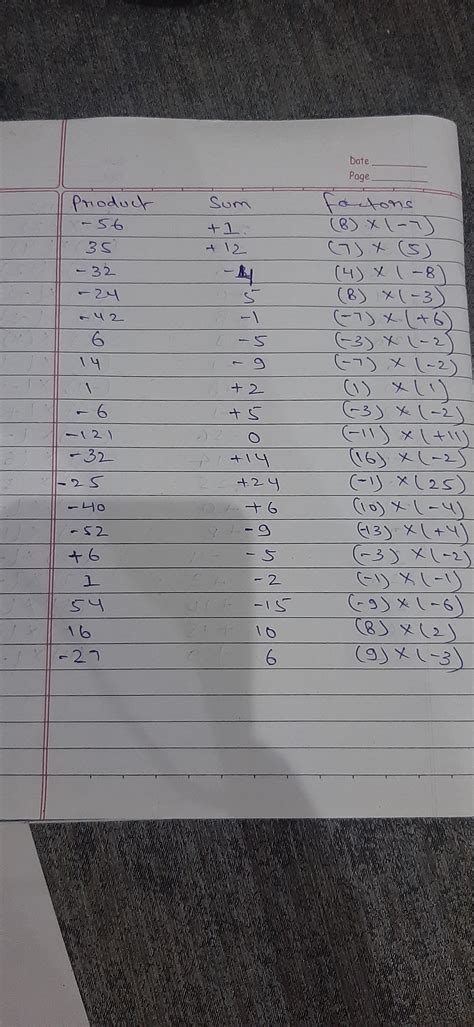 Date
Page
Product Sum Factors
-56 +1 (8) x (-7)
35 +12 (7) x (5)
-32 -4 (4) x (-8)
-24 5 (8) x (-3)
-42 -1 (-7) x (+6)
6 -5 (-3) x (-2)
14 -9 (-7) x (-2)
1 +2 (1) x (1)
-6 +5 (-3) x (-2)
-121 0 (-11) x (+11)
-32 +14 (16) x (-2)
-25 +24 (-1) x (25)
-40 +6 (10) x (-4)
-52 -9 (-13) x (+4)
+6 -5 (-3) x (-2)
1 -2 (-1) x (-1)
54 -15 (-9) x (-6)
16 10 (8) x (2)
-27 6 (9) x (-3)